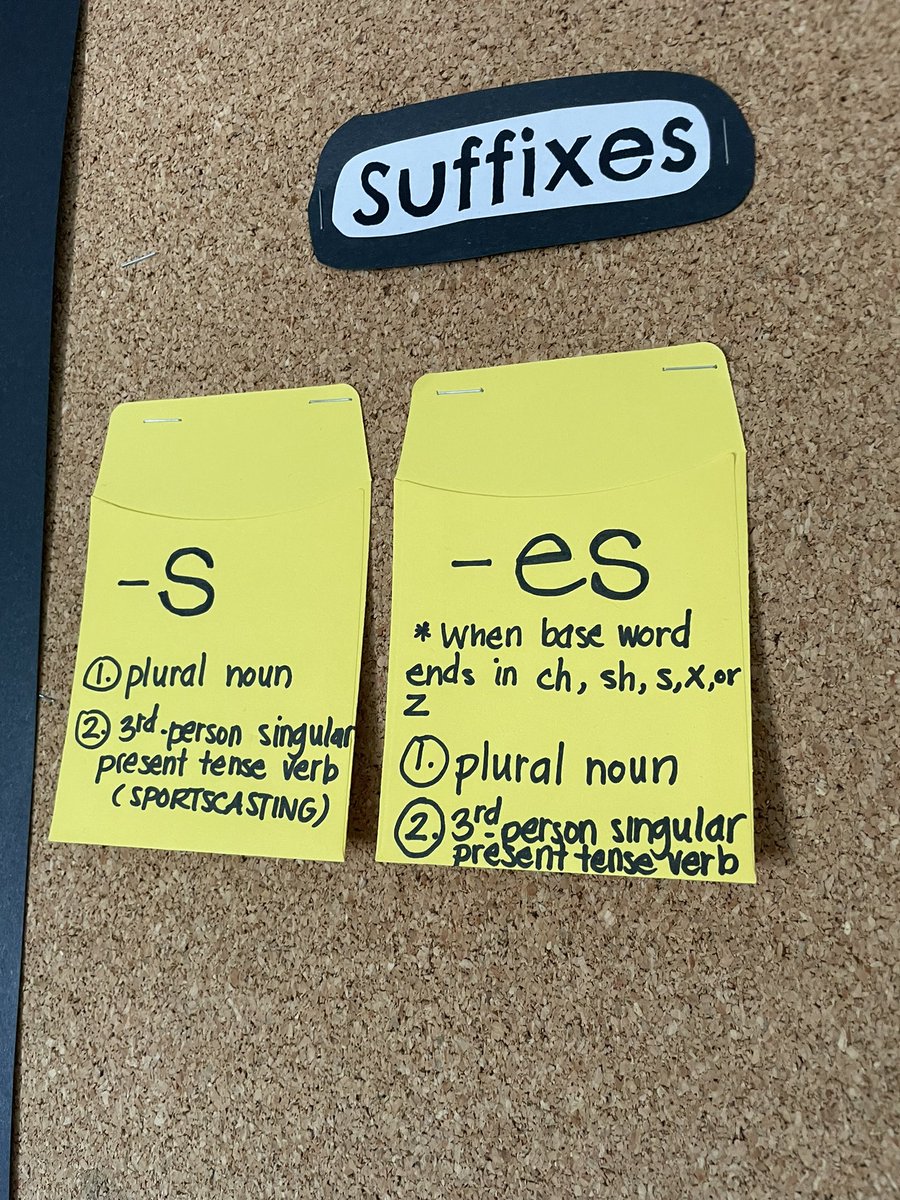 Suffixes
-s
1. plural noun
2. 3rd-person singular
present tense verb
(SPORTSCASTING)
-es
* When base word
ends in ch, sh, s, x, or
z
1. plural noun
2. 3rd-person singular
present tense verb